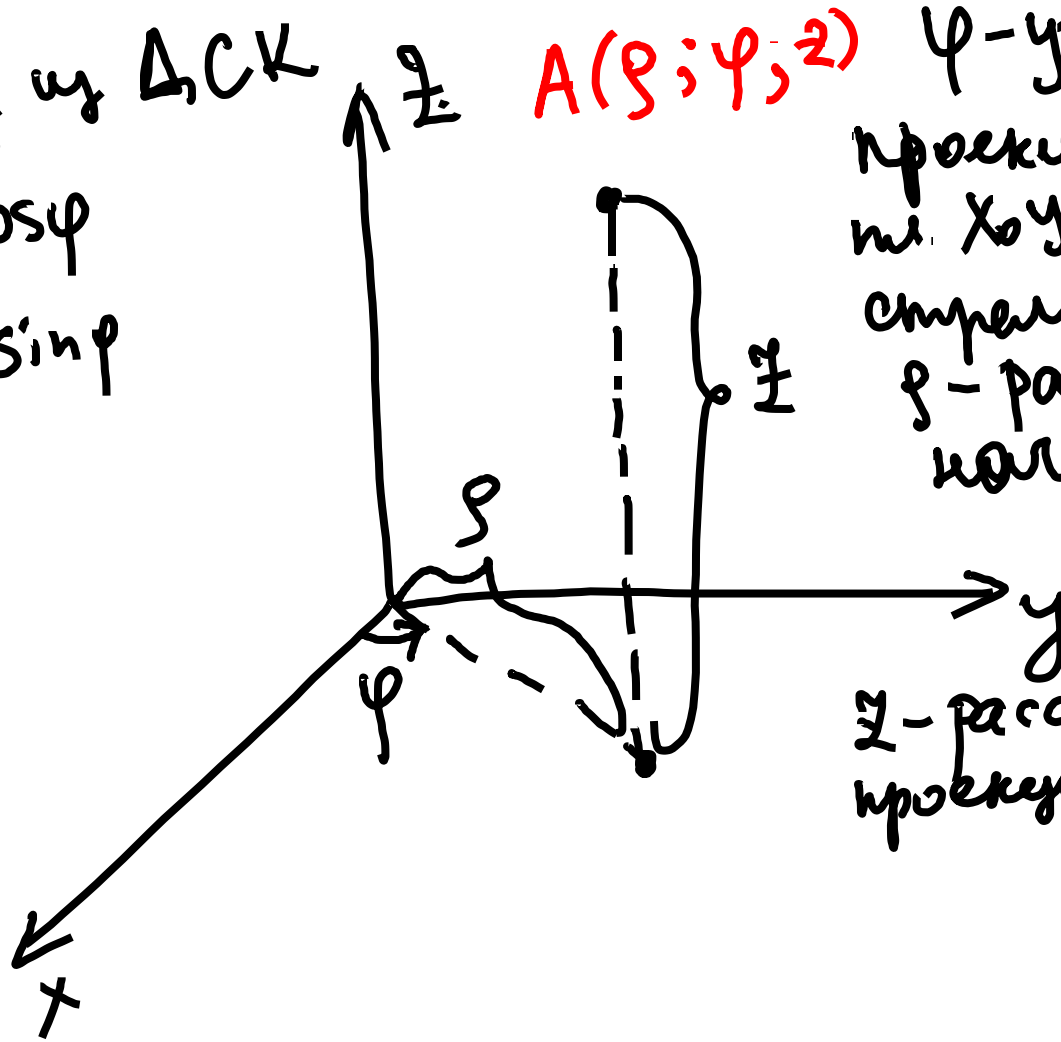 из ДСК
osφ
sinφ
z
A(ρ; φ; z)
φ - у
проек
пл. XоY
стрел
ρ - ра
нач
z
ρ
φ
y
x
z - расс
проекц